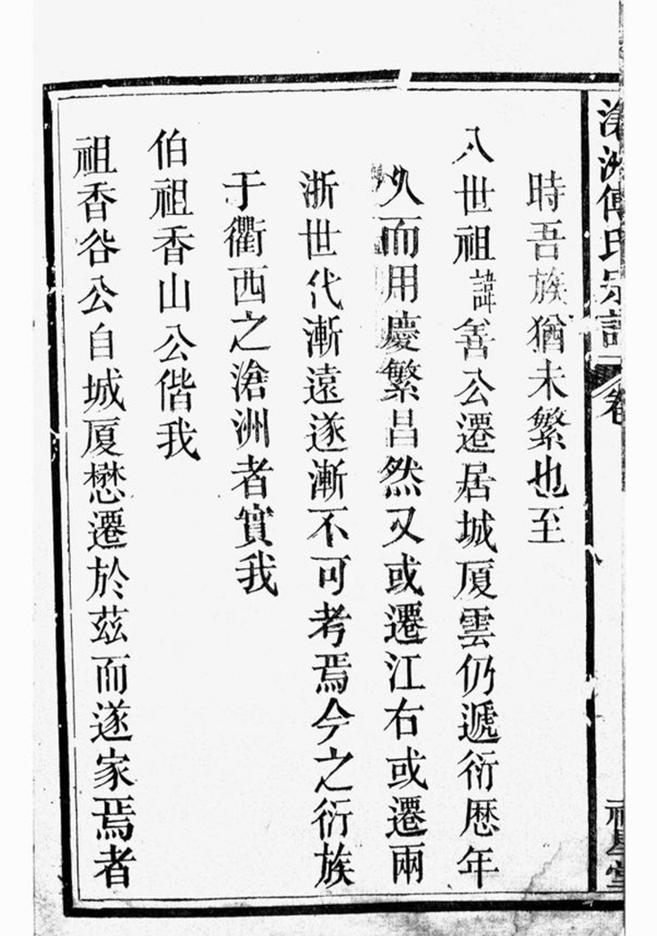 滄洲傅氏宗譜 卷
時吾族猶未繁也至
八世祖諱善公遷居城厦雲仍遞衍歷年
久而用慶繁昌然又或遷江右或遷兩
浙世代漸遠遂漸不可考焉今之衍族
于衢西之滄洲者實我
伯祖香山公偕我
祖香谷公自城厦懋遷於茲而遂家焉者